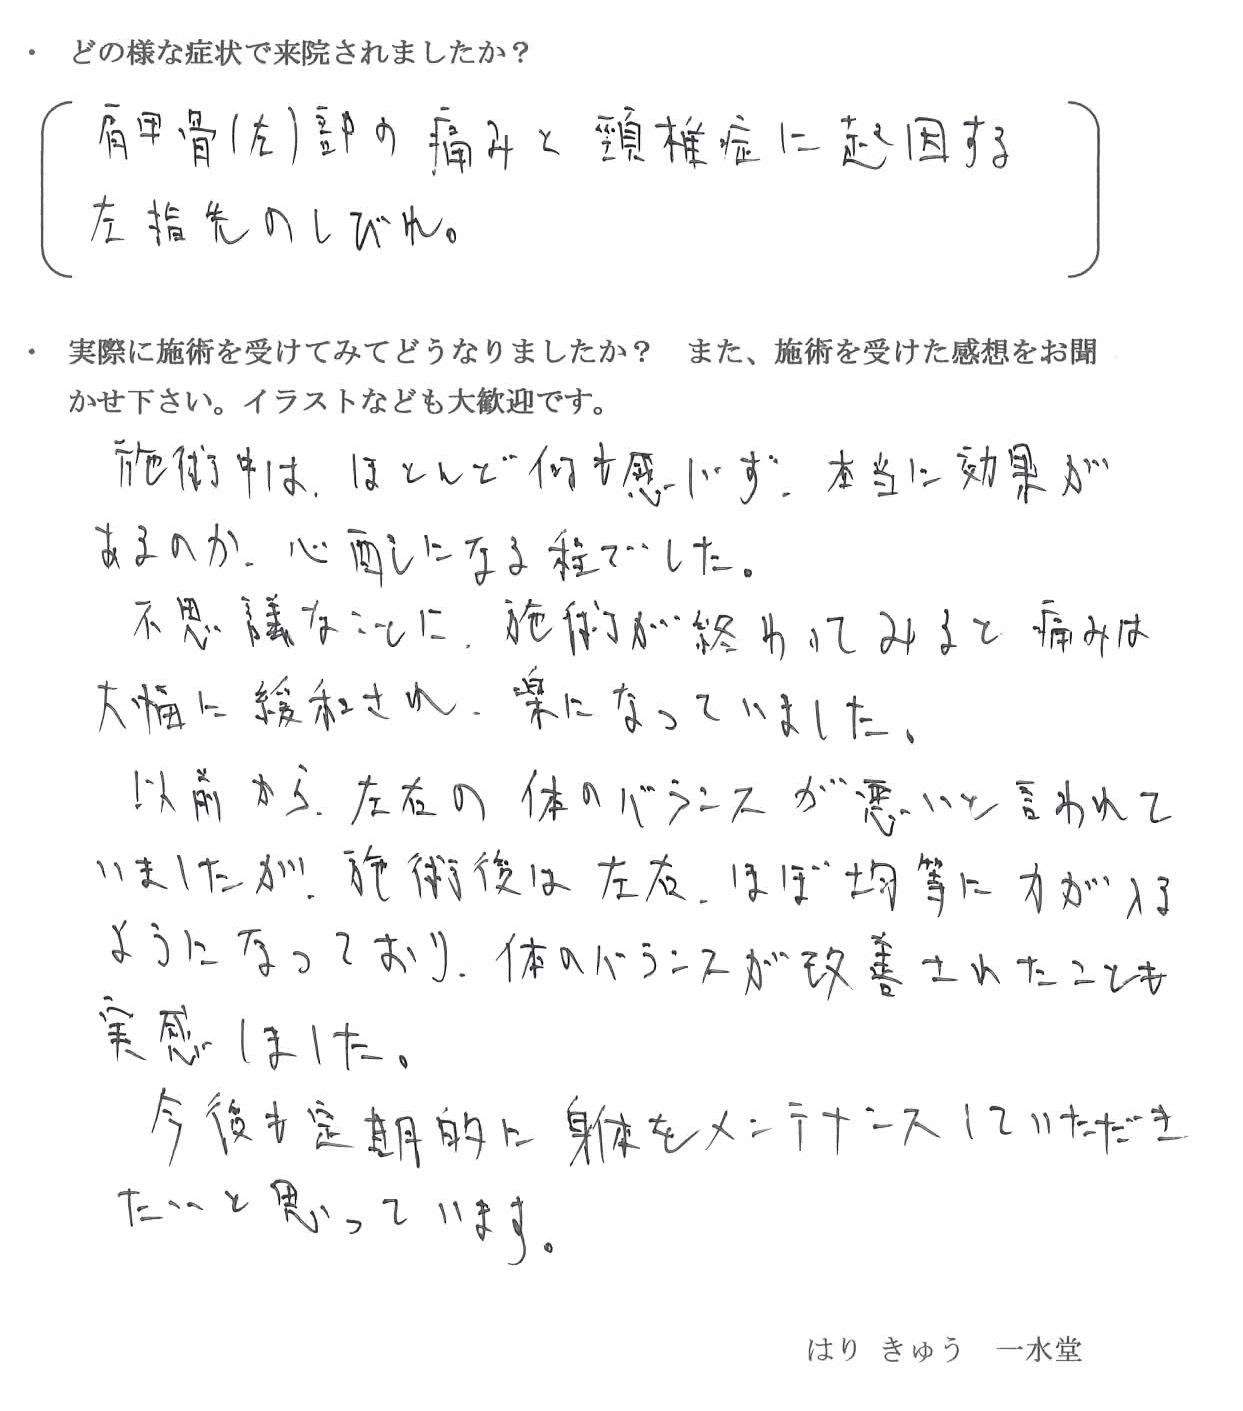 ・ どの様な症状で来院されましたか？
肩甲骨(左)部の痛みと頸椎症に起因する
左指先のしびれ。
・ 実際に施術を受けてみてどうなりましたか？　また、施術を受けた感想をお聞
かせ下さい。イラストなども大歓迎です。
施術中は、ほとんど何も感じず、本当に効果が
あるのか、心配になる程でした。
不思議なことに、施術が終わってみると痛みは
大幅に緩和され、楽になっていました。
以前から、左右の体のバランスが悪いと言われて
いましたが、施術後は左右、ほぼ均等に力が入る
ようになっており、体のバランスが改善されたことも
実感しました。
今後も定期的に身体をメンテナンスしていただき
たいと思っています。
はり きゅう　一水堂